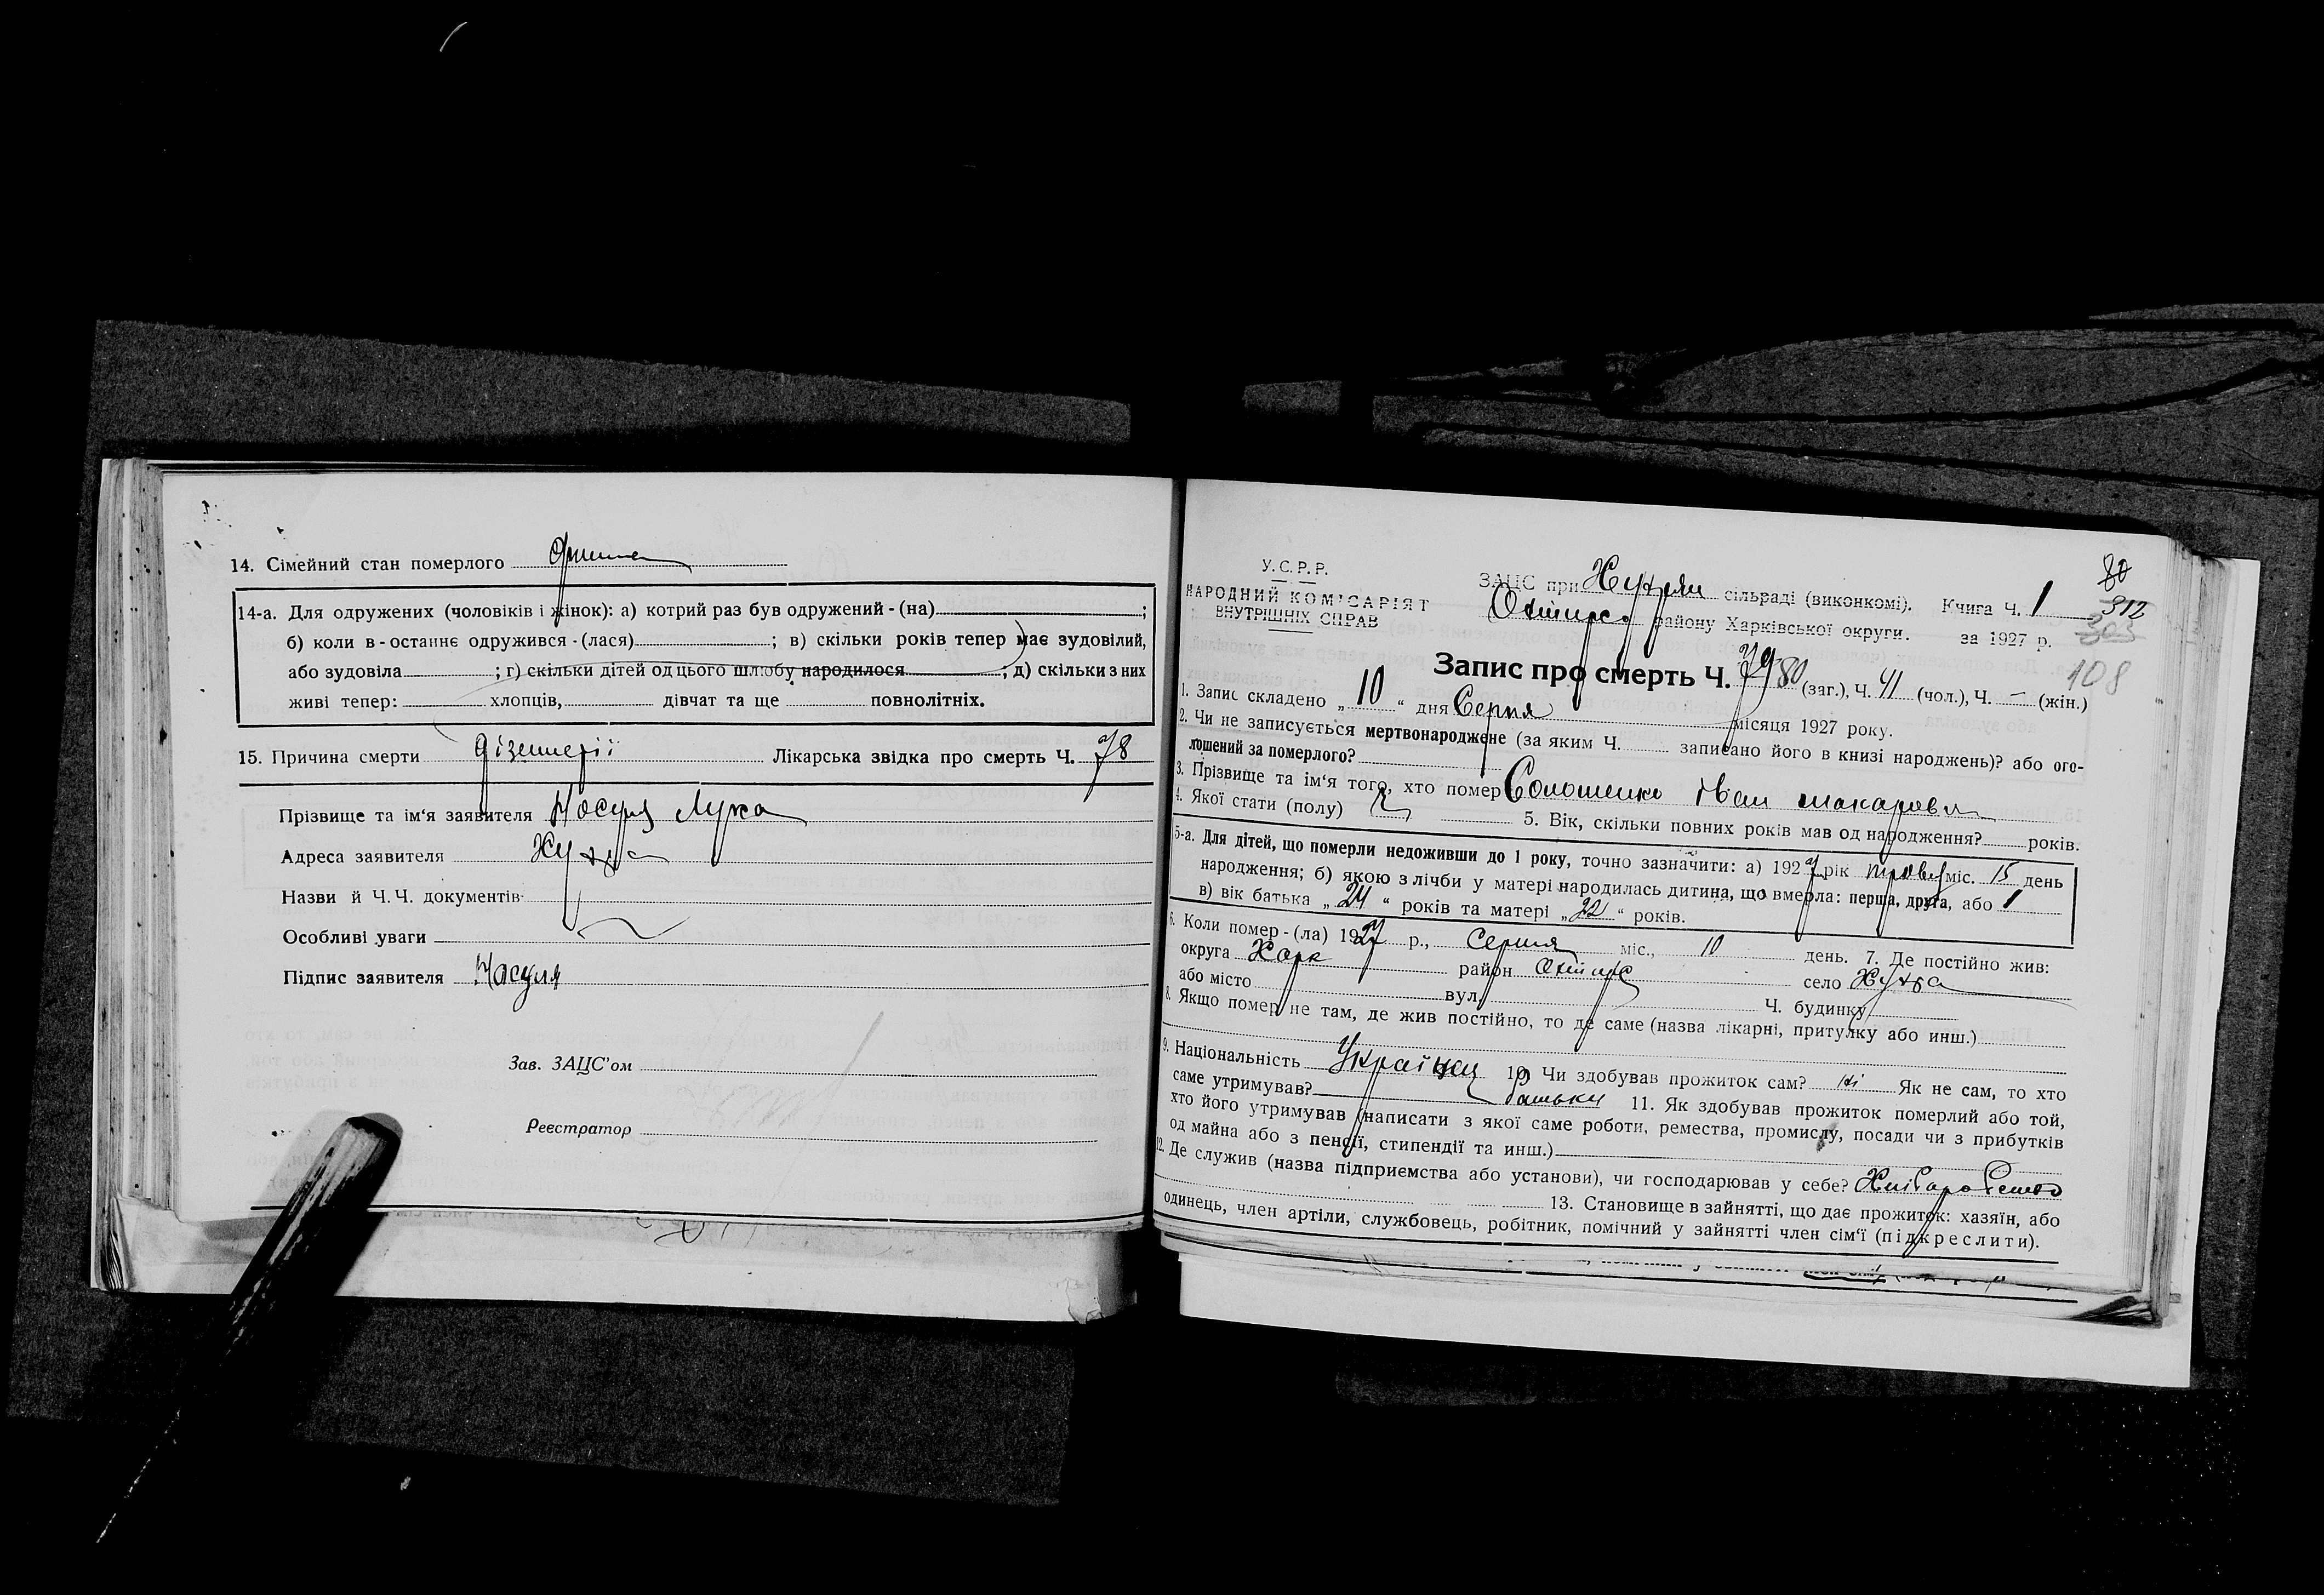 14. Сімейний стан померлого
14-а. Для одружених (чоловіків і жінок): а) котрий раз був одружений - (на) ;
б) коли в - останнє одружився - (лася) ; в) скільки років тепер має зудовілий,
або зудовіла ; г) скільки дітей од цього шлюбу народилося ; д) скільки з них
живі тепер: хлопців, дівчат та ще повнолітніх.
15. Причина смерти дізентерії Лікарська звідка про смерть Ч. 78
Прізвище та ім'я заявителя Носуля Лука
Адреса заявителя Хухра
Назви й Ч. Ч. документів
Особливі уваги
Підпис заявителя Носуля
Зав. ЗАЦС'ом
Реєстратор
У. С. Р. Р.
НАРОДНИЙ КОМІСАРІЯТ
ВНУТРІШНІХ СПРАВ
ЗАЦС при Хухрян сільраді (виконкомі). Книга Ч. 1
Охтирс. району Харківської округи. за 1927 р.
80
312
303
108
Запис про смерть Ч. 79 80 (заг.), Ч. 41 (чол.), Ч. – (жін.)
1. Запис складено „ 10 “ дня Серпня місяця 1927 року.
2. Чи не записується мертвонароджене (за яким Ч. записано його в книзі народжень)? або ого-
лошений за померлого?
3. Прізвище та ім'я того, хто помер Солошенко Іван Макарови
4. Якої стати (полу) Ч 5. Вік, скільки повних років мав од народження? років.
5-а. Для дітей, що померли недоживши до 1 року, точно зазначити: а) 1927 рік травня міс. 15 день
народження; б) якою з лічби у матері народилась дитина, що вмерла: перша, друга, або 1
в) вік батька „ 24 “ років та матері „ 22 “ років.
6. Коли помер - (ла) 1927 р., Серпня міс., 10 день. 7. Де постійно жив:
округа Харк район Охтирс село Хухра
або місто вул. Ч. будинку
8. Якщо помер не там, де жив постійно, то де саме (назва лікарні, притулку або инш.)
9. Національність Українец 10. Чи здобував прожиток сам? ні Як не сам, то хто
саме утримував? батьки 11. Як здобував прожиток померлий або той,
хто його утримував (написати з якої саме роботи, ремества, промислу, посади чи з прибутків
од майна або з пенсії, стипендії та инш.)
12. Де служив (назва підприємства або установи), чи господарював у себе? Хліборобство
13. Становище в зайнятті, що дає прожиток: хазяїн, або
одинець, член артіли, службовець, робітник, помічний у зайнятті член сім'ї (підкреслити).